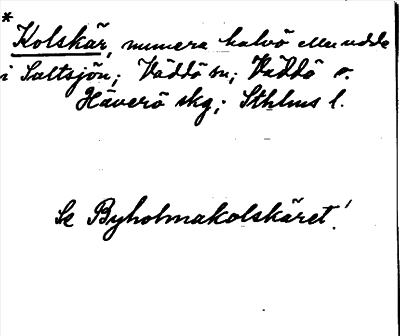 *
Kolskär, numera halvö eller udde
i Saltsjön; Väddö sn; Väddö o.
Häverö skg; Sthlms l.
Se Byholmakolskäret!